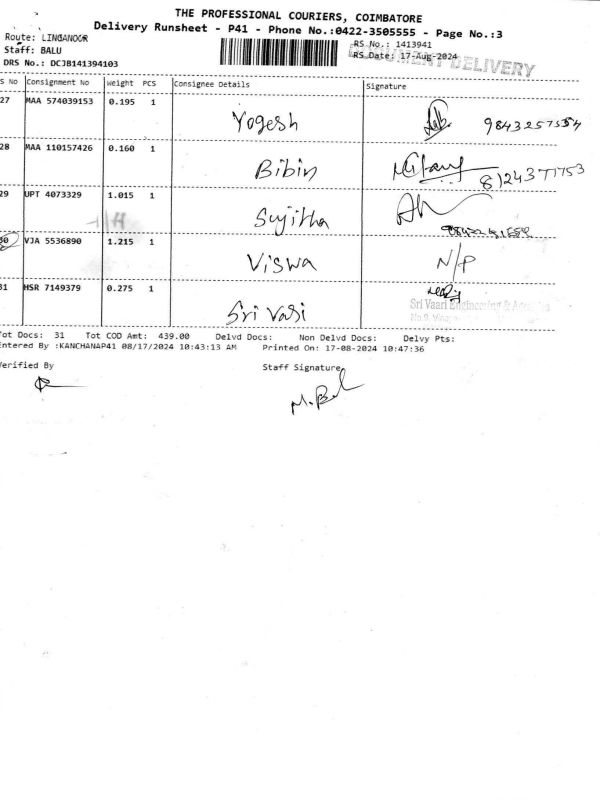 THE PROFESSIONAL COURIERS, COIMBATORE
Delivery Runsheet - P41 - Phone No.:0422-3505555 - Page No.:3
Route: LINGANOOR
RS No.: 1413941
Staff: BALU
RS Date: 17-Aug-2024
DOCUMENT DELIVERY
DRS No.: DCJB141394103
S No Consignment No Weight PCS Consignee Details Signature
27 MAA 574039153 0.195 1 Yogesh
28 MAA 110157426 0.160 1 Bibin 8124371753
29 UPT 4073329 1.015 1 Sujitha
30 VJA 5536890 1.215 1 Viswa N/P
31 HSR 7149379 0.275 1 Sri Vasi
Sri Vaari Engineering &
No.9,
Tot Docs: 31 Tot COD Amt: 439.00 Delvd Docs: Non Delvd Docs: Delvy Pts:
Entered By :KANCHANAP41 08/17/2024 10:43:13 AM Printed On: 17-08-2024 10:47:36
Verified By Staff Signature